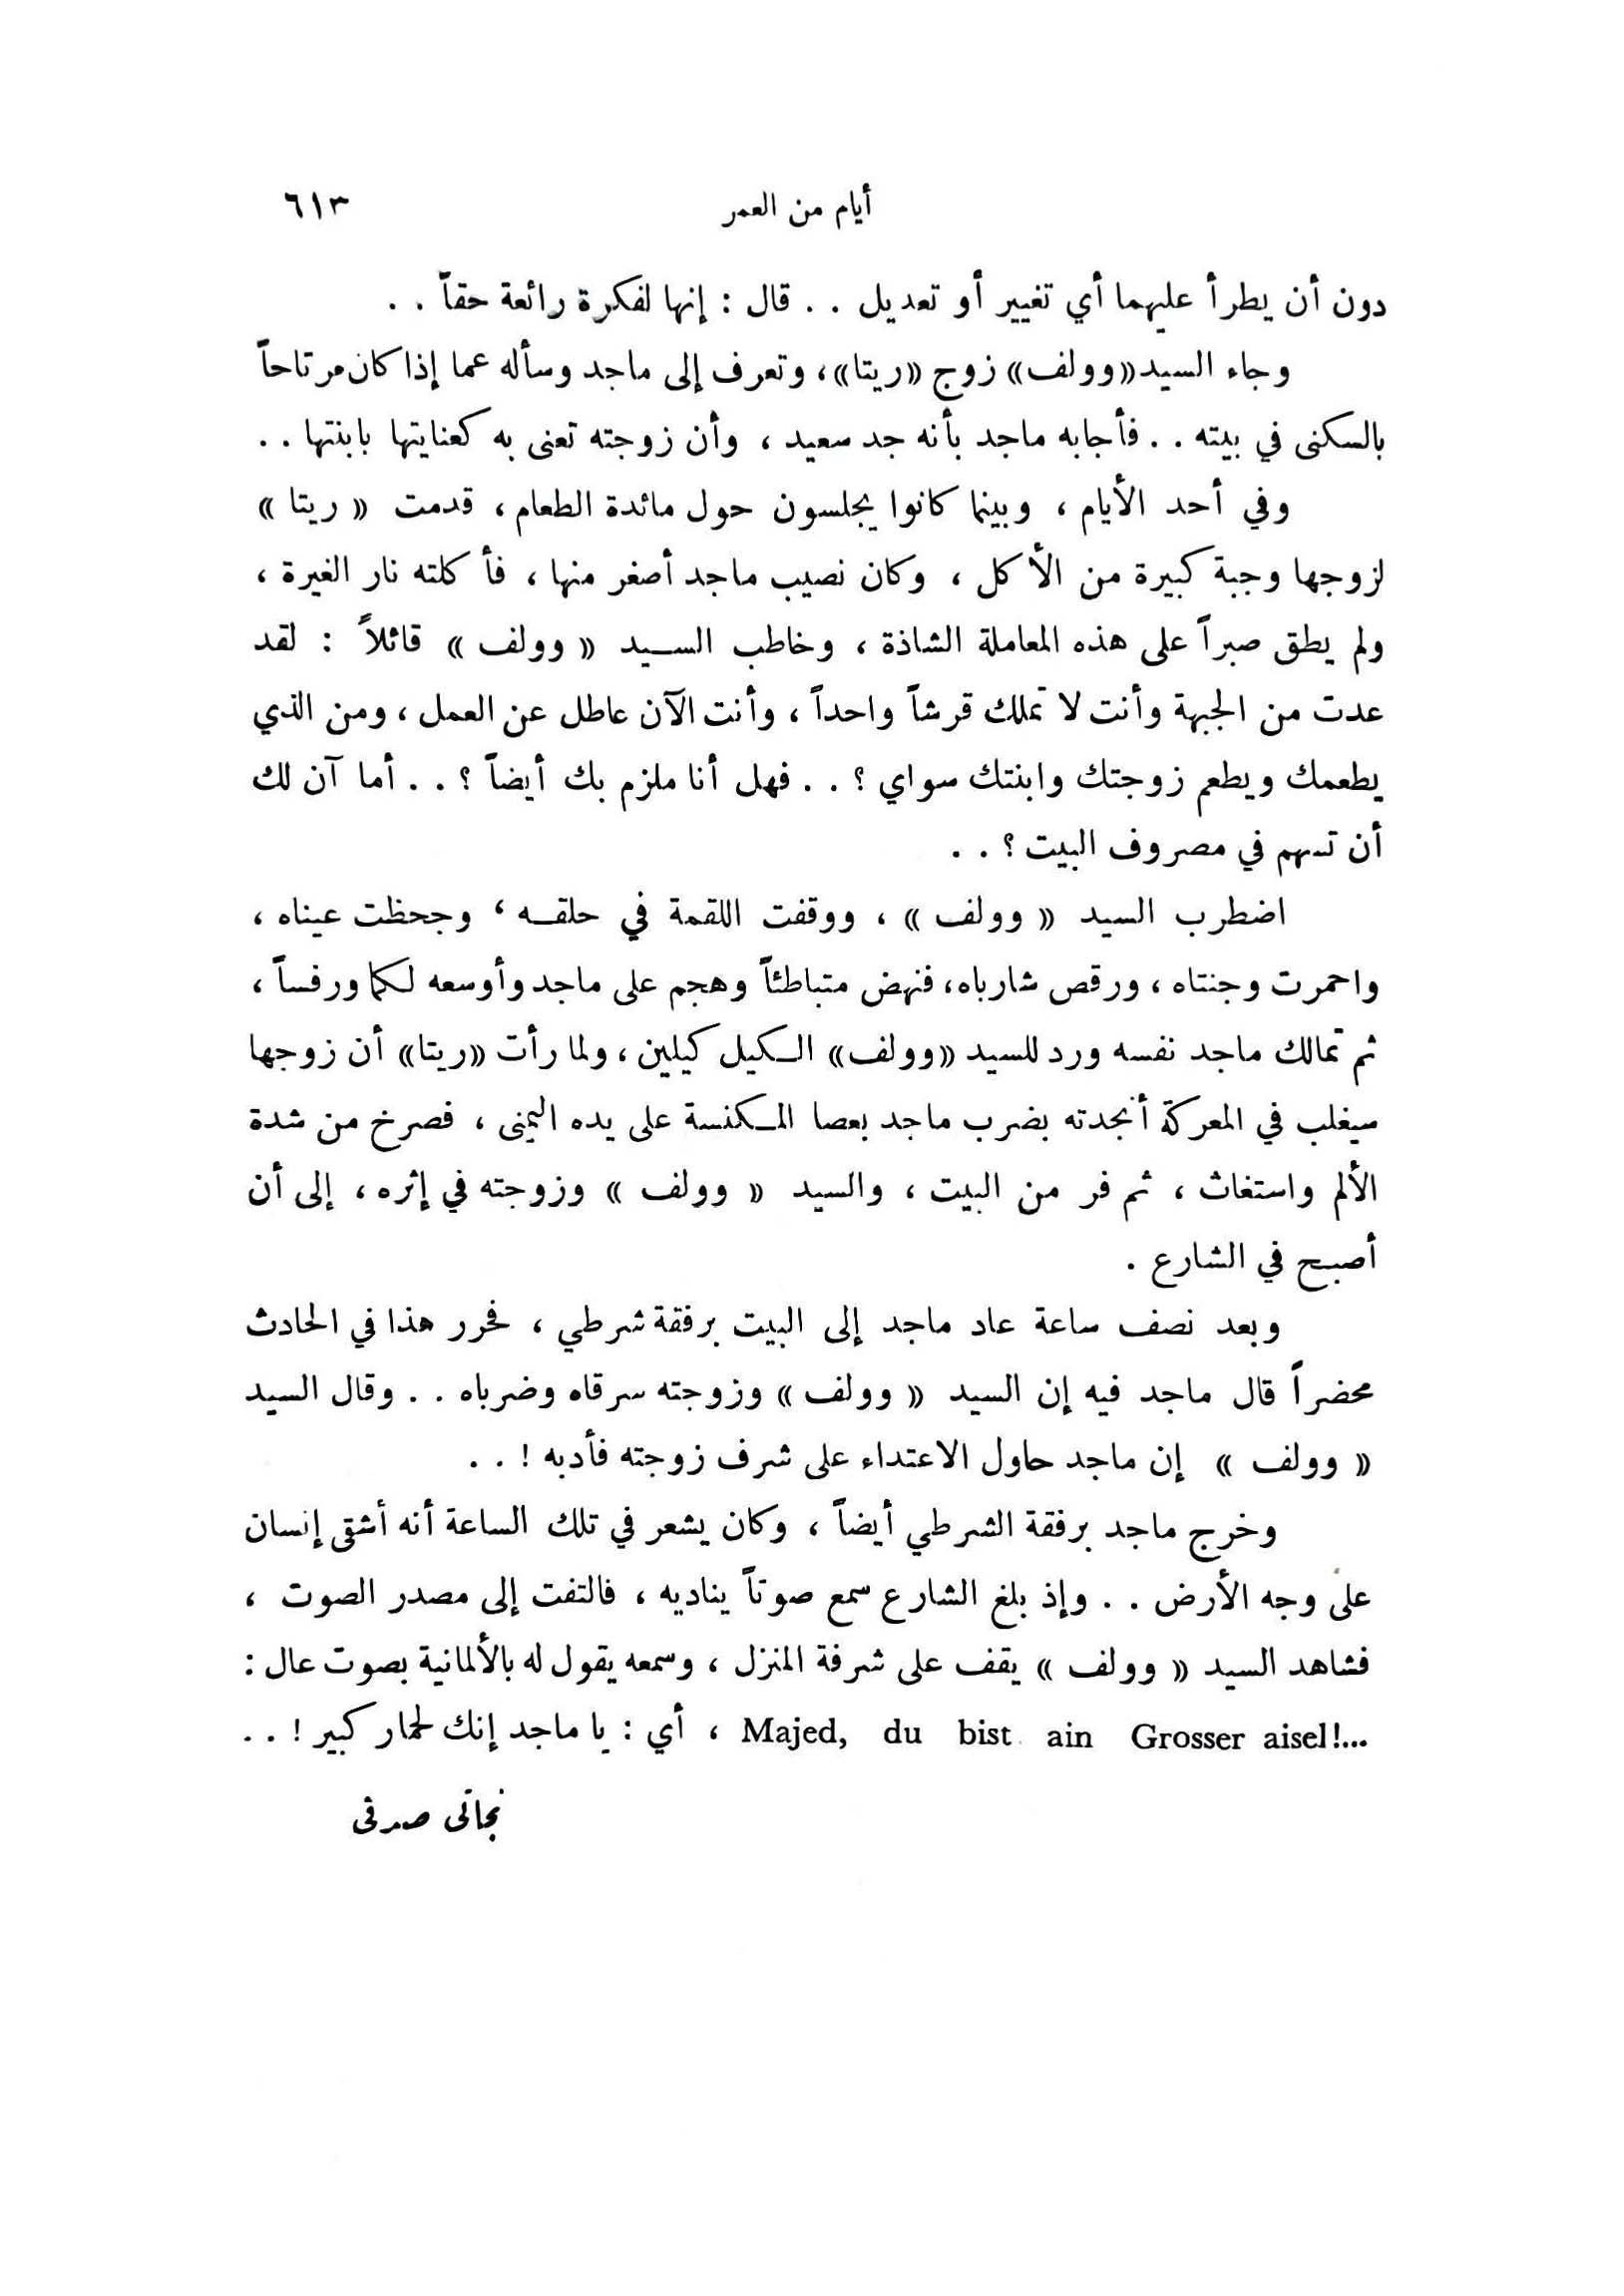 أيام من العمر ٦١٣
دون أن يطرأ عليهما أي تغيير أو تعديل . . قال : إنها لفكرة رائعة حقاً . .
وجاء السيد «وولف» زوج «ريتا»، وتعرف إلى ماجد وسأله عما إذا كان مرتاحاً
بالسكنى في بيته . . فأجابه ماجد بأنه جد سعيد ، وأن زوجته تعنى به كعنايتها بابنتها . .
وفي أحد الأيام ، وبينما كانوا يجلسون حول مائدة الطعام ، قدمت « ريتا »
لزوجها وجبة كبيرة من الأكل ، وكان نصيب ماجد أصغر منها ، فأكلته نار الغيرة ،
ولم يطق صبراً على هذه المعاملة الشاذة ، وخاطب السيد « وولف » قائلاً : لقد
عدت من الجبهة وأنت لا تملك قرشاً واحداً ، وأنت الآن عاطل عن العمل ، ومن الذي
يطعمك ويطعم زوجتك وابنتك سواي ؟ . . فهل أنا ملزم بك أيضاً ؟ . . أما آن لك
أن تسهم في مصروف البيت ؟ . .
اضطرب السيد « وولف » ، ووقفت اللقمة في حلقه ، وجحظت عيناه ،
واحمرت وجنتاه ، ورقص شارباه، فنهض متباطئاً وهجم على ماجد وأوسعه لكما ورفساً ،
ثم تمالك ماجد نفسه ورد للسيد «وولف» الكيل كيلين ، ولما رأت «ريتا» أن زوجها
سيغلب في المعركة أنجدته بضرب ماجد بعصا المكنسة على يده اليمنى ، فصرخ من شدة
الألم واستغاث ، ثم فر من البيت ، والسيد « وولف » وزوجته في إثره ، إلى أن
أصبح في الشارع .
وبعد نصف ساعة عاد ماجد إلى البيت برفقة شرطي ، فحرر هذا في الحادث
محضراً قال ماجد فيه إن السيد « وولف » وزوجته سرقاه وضرباه . . وقال السيد
« وولف » إن ماجد حاول الاعتداء على شرف زوجته فأدبه ! . .
وخرج ماجد برفقة الشرطي أيضاً ، وكان يشعر في تلك الساعة أنه أشقى إنسان
على وجه الأرض . . وإذ بلغ الشارع سمع صوتاً يناديه ، فالتفت إلى مصدر الصوت ،
فشاهد السيد « وولف » يقف على شرفة المنزل ، وسمعه يقول له بالألمانية بصوت عال :
Majed, du bist ain Grosser aisel!... ، أي : يا ماجد إنك لحمار كبير ! . .
نجاتى صدقى